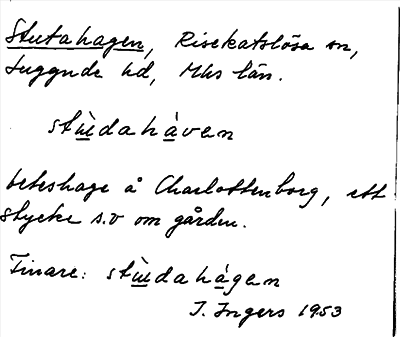 Stutahagen, Risekatslösa sn,
Luggude hd, Mhs län.
stùdahàven
beteshage å Charlottenborg, ett
stycke s.v om gården.
Finare: stùdahàgen
I. Ingers 1953